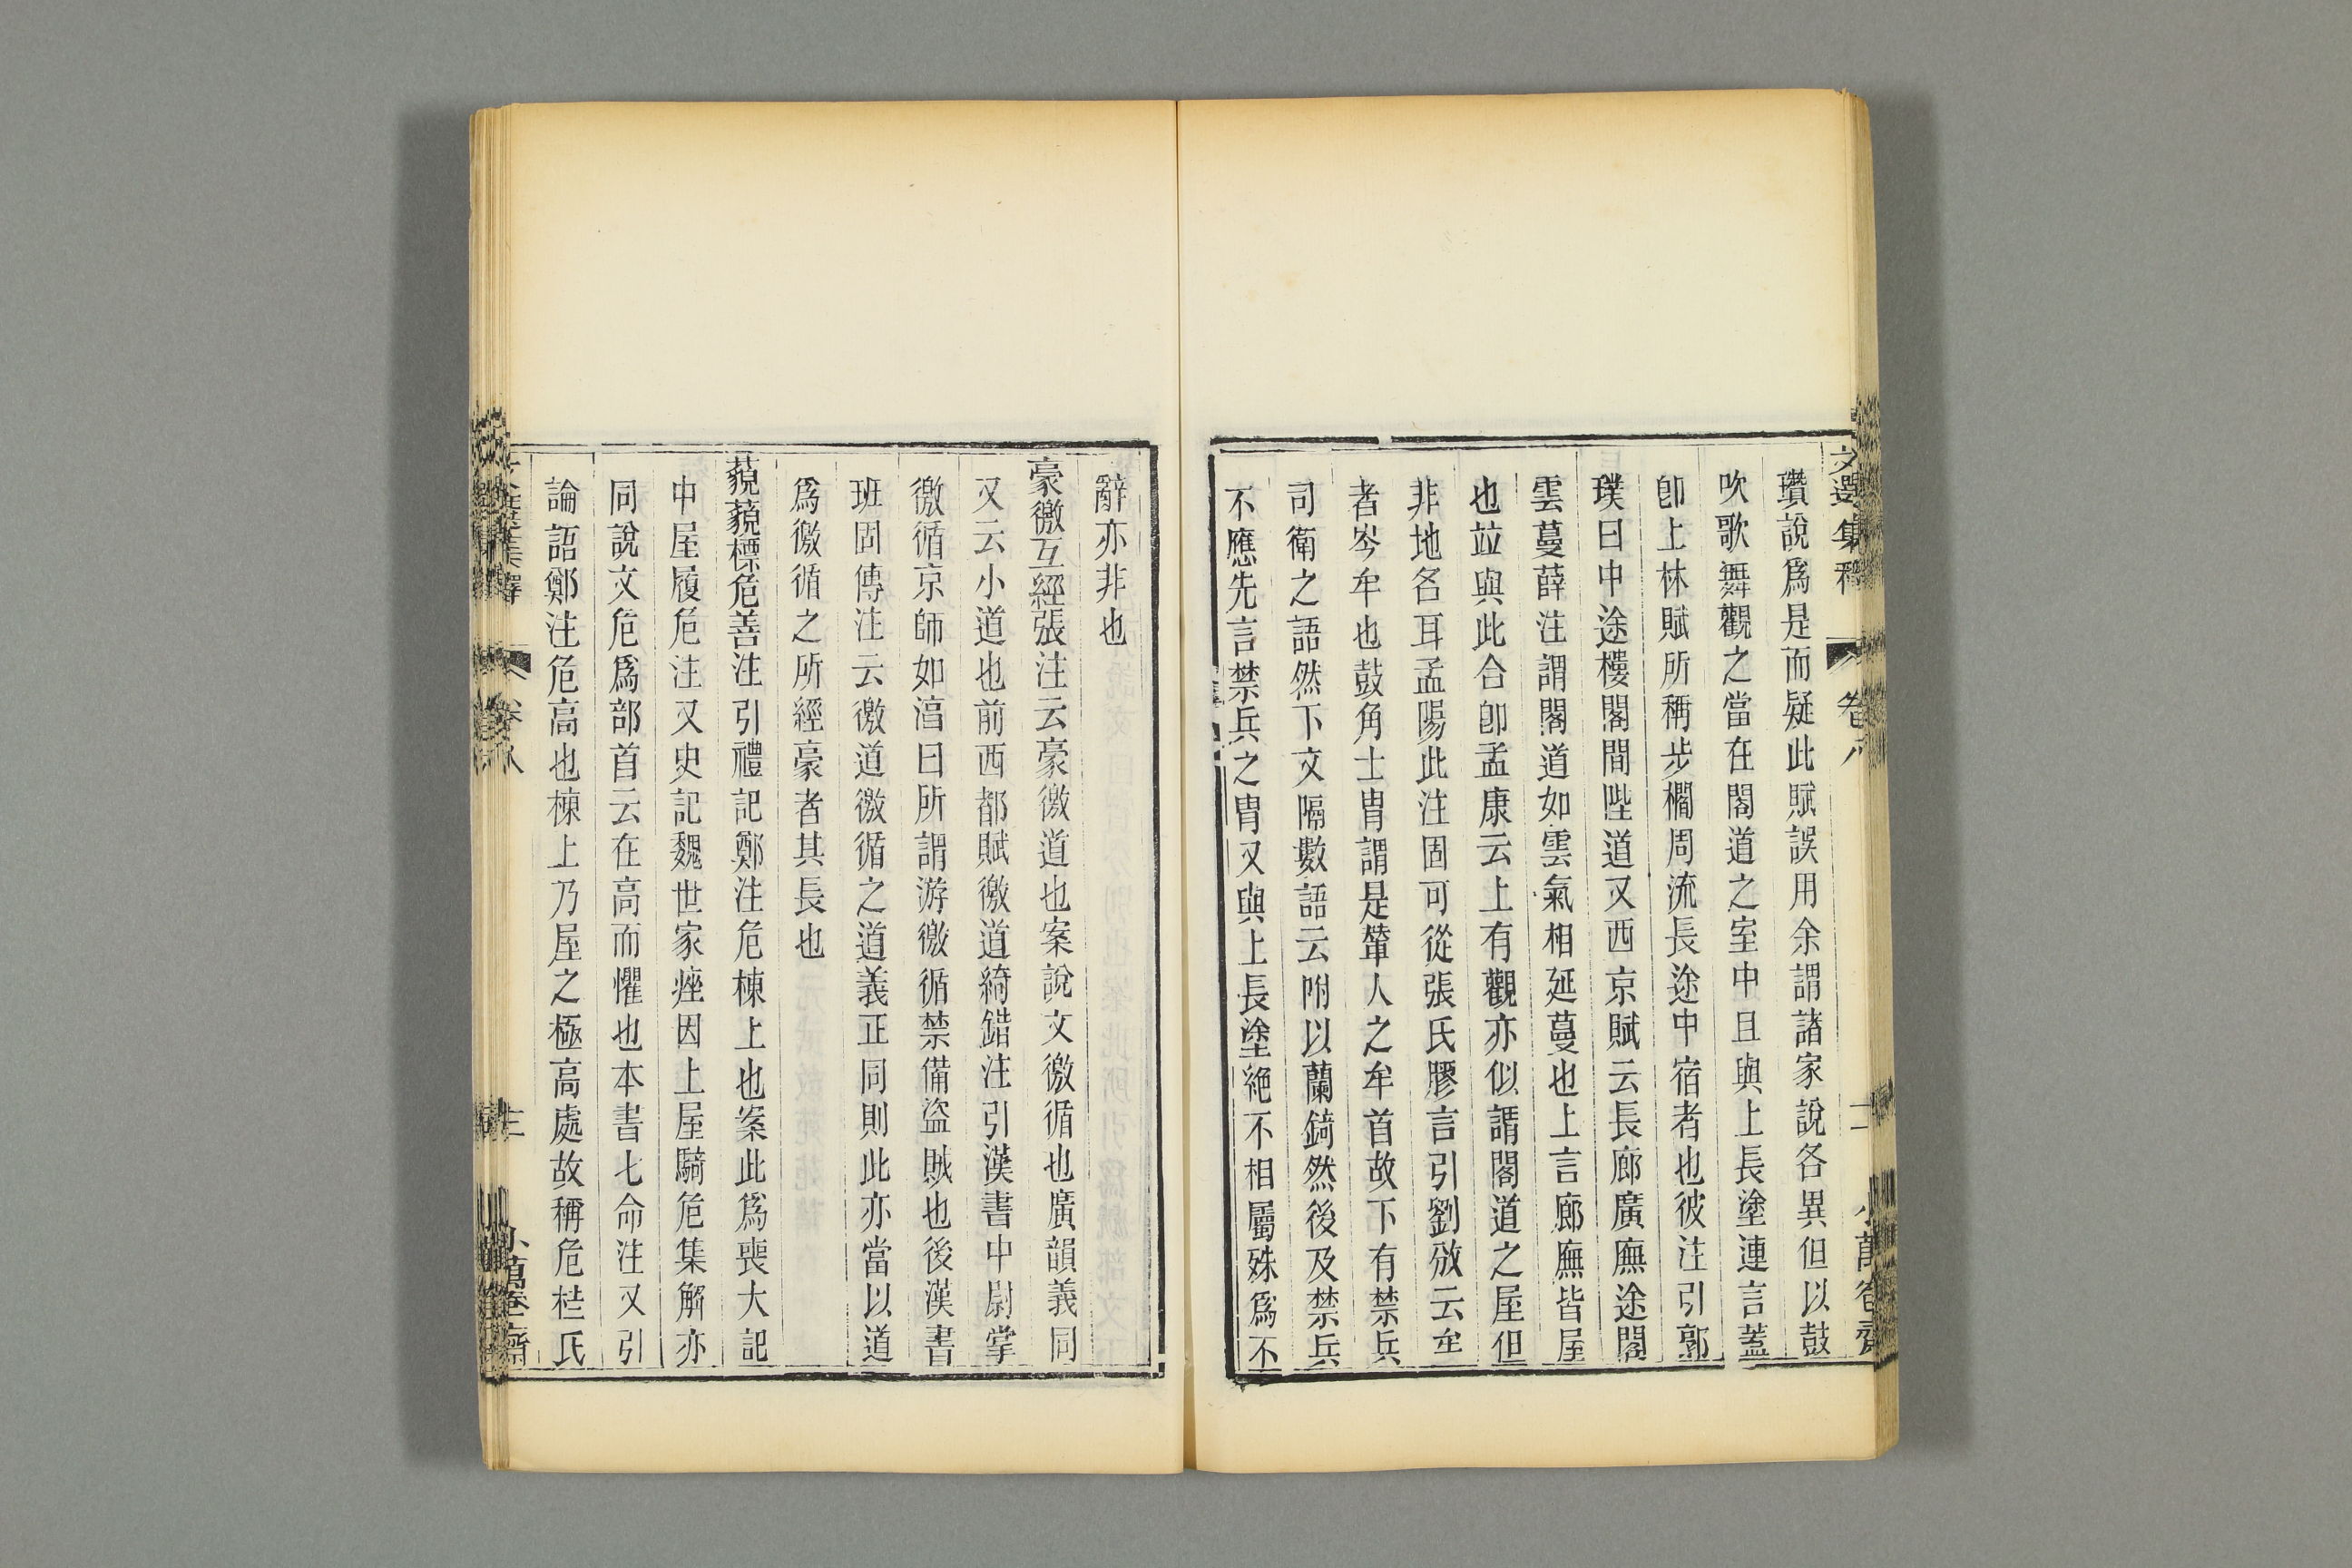 文選集釋 卷八 十二 小萬卷齋
瓚說爲是而疑此賦誤用余謂諸家說各異但以鼓
吹歌舞觀之當在閣道之室中且與上長塗連言蓋
卽上林賦所稱步櫩周流長途中宿者也彼注引郭
璞曰中途樓閣間陛道又西京賦云長廊廣廡途閣
雲蔓薛注謂閣道如雲氣相延蔓也上言廊廡皆屋
也竝與此合卽孟康云上有觀亦似謂閣道之屋但
非地名耳孟陽此注固可從張氏膠言引劉攽云牟
者岑牟也鼓角士胄謂是輦人之牟首故下有禁兵
司衛之語然下文隔數語云附以蘭錡然後及禁兵
不應先言禁兵之胄又與上長塗絶不相屬殊爲不
辭亦非也
豪徼互經張注云豪徼道也案說文徼循也廣韻義同
又云小道也前西都賦徼道綺錯注引漢書中尉掌
徼循京師如淳曰所謂游徼循禁備盜賊也後漢書
班固傳注云徼道徼循之道義正同則此亦當以道
爲徼循之所經豪者其長也
藐藐標危善注引禮記鄭注危棟上也案此爲喪大記
中屋履危注又史記魏世家痤因上屋騎危集解亦
同說文危爲部首云在高而懼也本書七命注又引
論語鄭注危高也棟上乃屋之極高處故稱危桂氏
文選集釋 卷八 十三 小萬卷齋